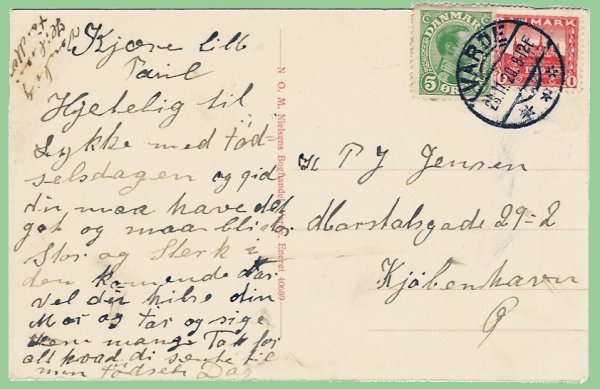 Kjære lill
Paul
Hjetelig til
Lykke med föd-
selsdagen og gid
din maa have det
got og maa bli stor
Stor og Sterk i
den komende Aar
vel din hilse din
Mor og Far og sige
dem mange Tak for
alt hvad di sente til
min födsels Dag
N. O. M. Nielsens Boghandel Eneret 40689
DANMARK
5 ØRE
DANMARK
10
VARDE
29.11.20.8-12F
H P J Jensen
Marstalsgade 29=2
Kjöbenhavn